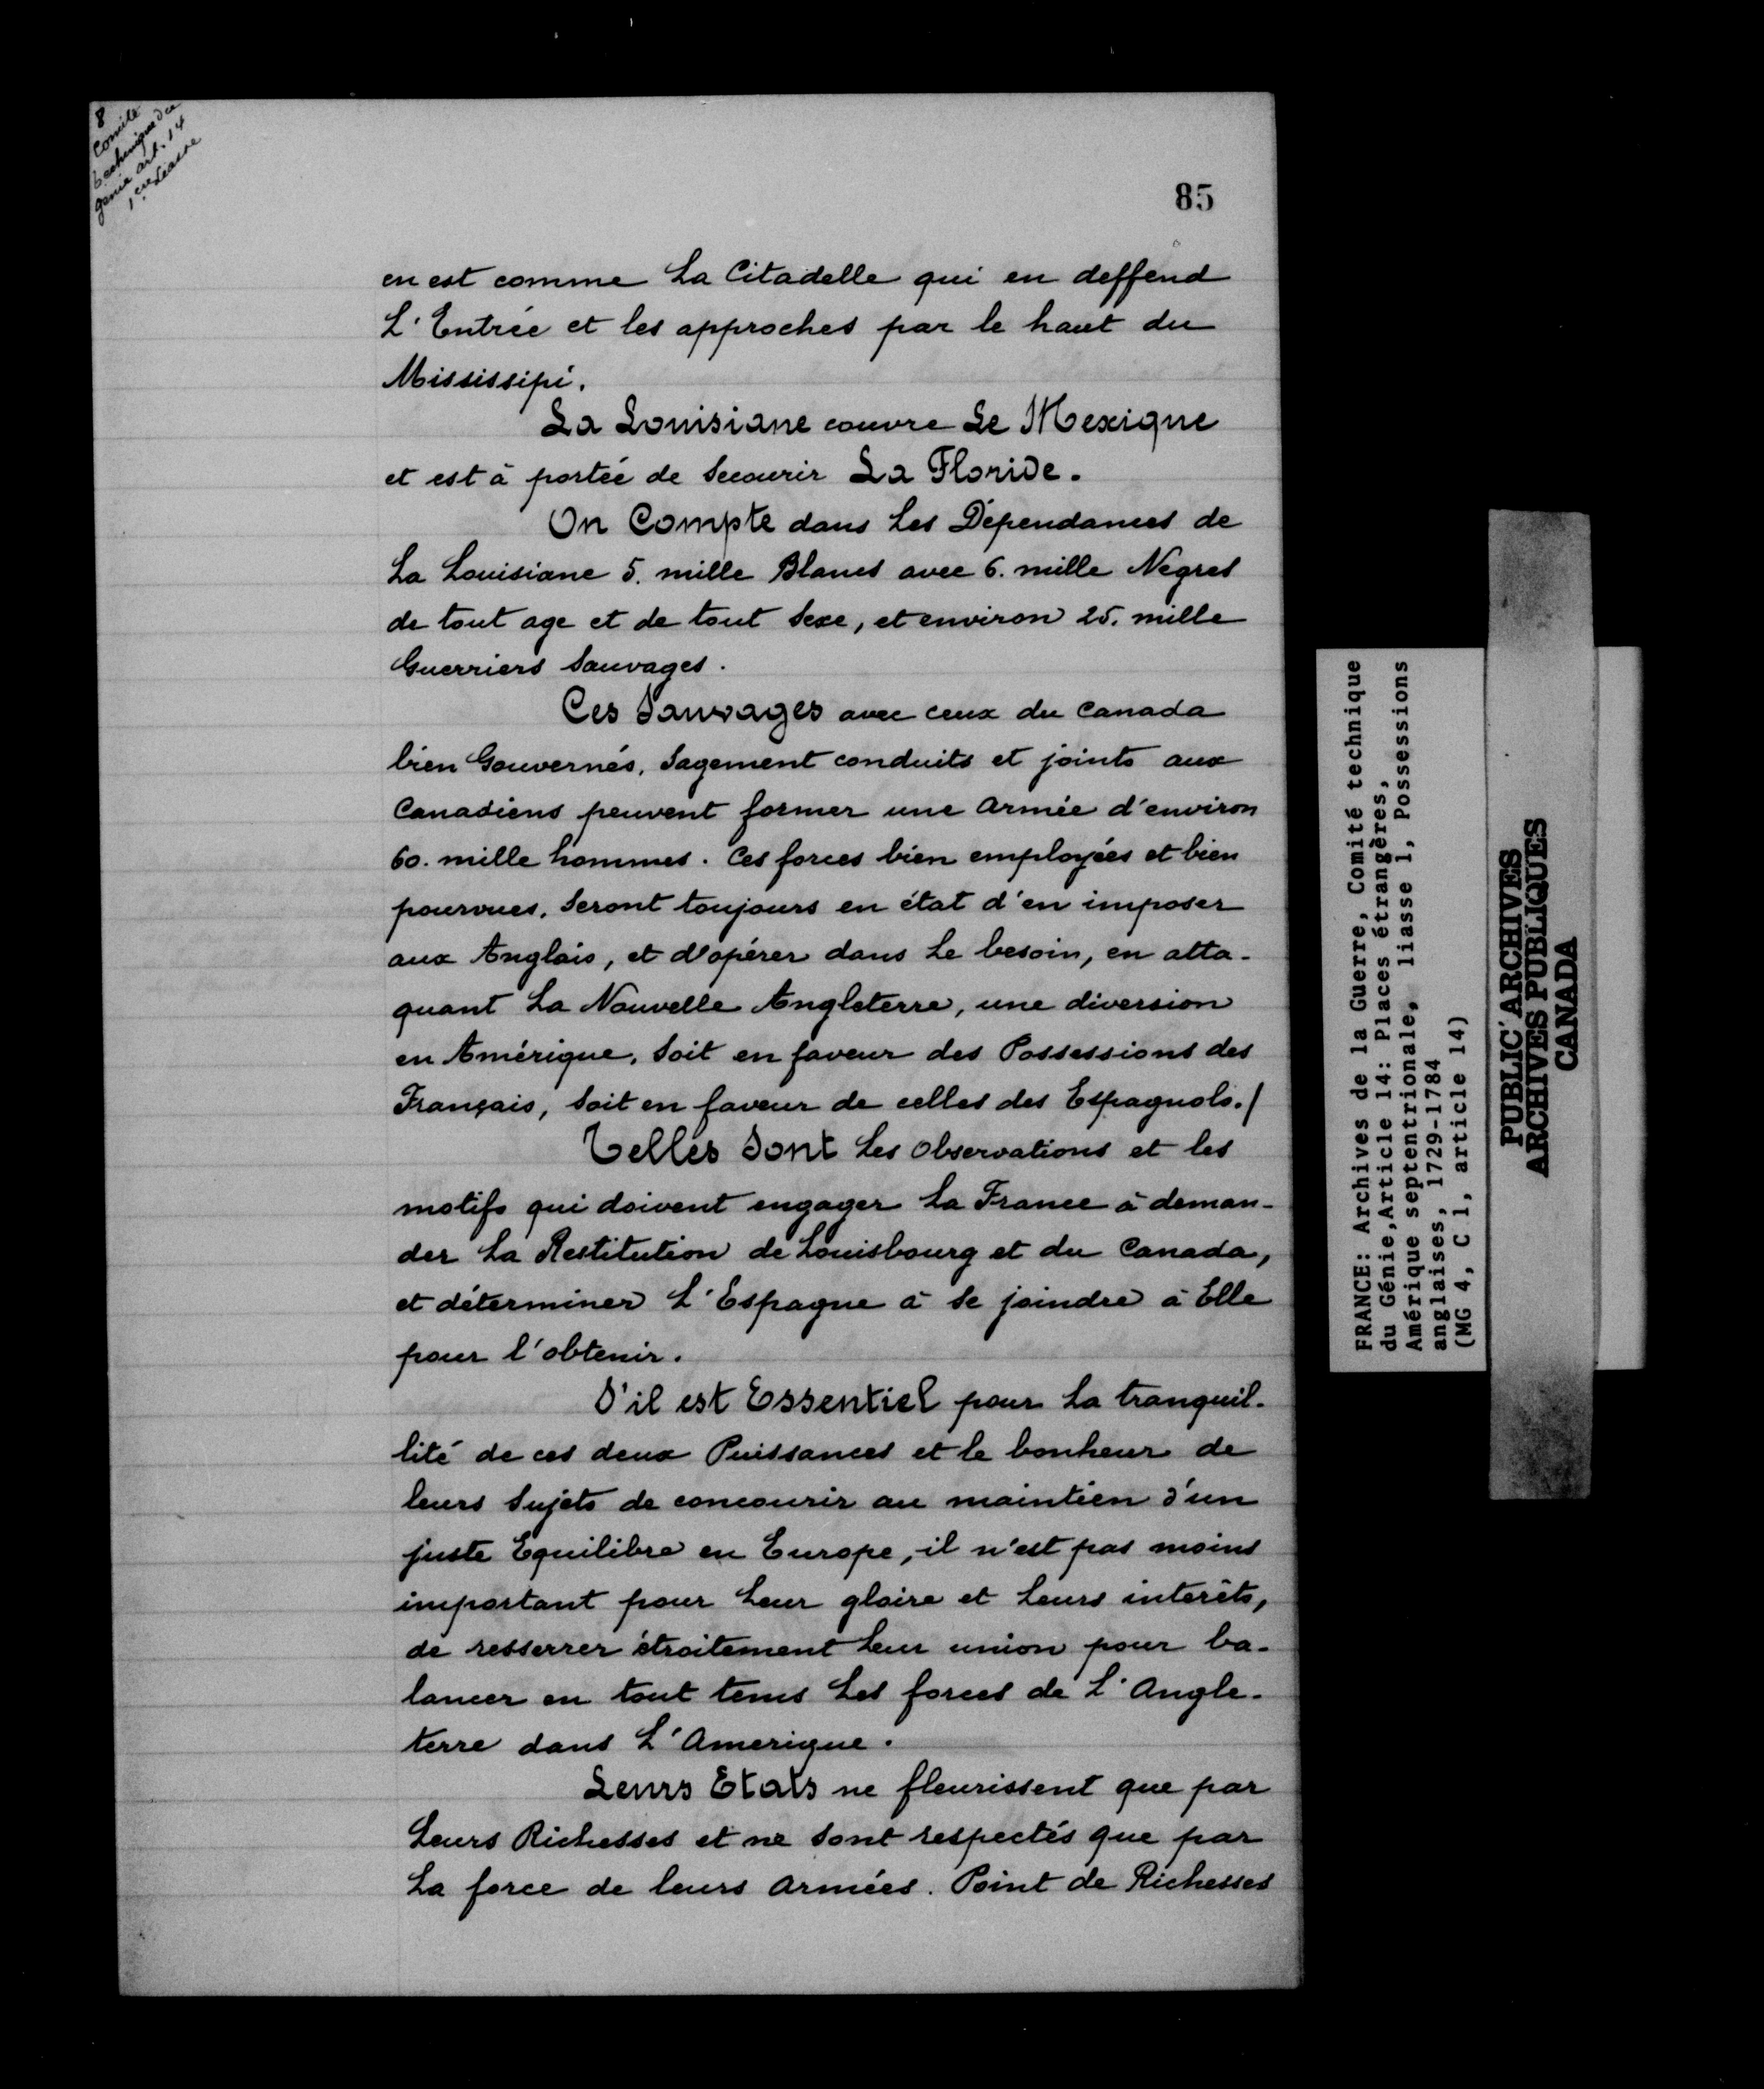 8
Comité
technique du
génie art. 14
1ere Liasse
85
en est comme La Citadelle qui en deffend
L'Entrée et les approches par le haut du
Mississipi.
La Louisiane couvre Le Mexique
et est à portée de Secourir La Floride.
On Compte dans Les Dépendances de
La Louisiane 5. mille Blancs avec 6. mille Negres
de tout age et de tout Sexe, et environ 25. mille
Guerriers Sauvages.
Ces Sauvages avec ceux du Canada
bien Gouvernés, Sagement conduits et joints aux
Canadiens peuvent former une Armée d'environ
60. mille hommes. Ces forces bien employées et bien
pourvues, Seront toujours en état d'en imposer
aux Anglais, et d'opérer dans Le besoin, en atta-
quant La Nouvelle Angleterre, une diversion
en Amérique, Soit en faveur des Possessions des
Français, Soit en faveur de celles des Espagnols./
Telles Sont Les Observations et les
motifs qui doivent engager La France à deman-
der La Restitution de Louisbourg et du Canada,
et déterminer L'Espagne à Se joindre à Elle
pour l'obtenir.
S'il est Essentiel pour La tranquil-
lité de ces deux Puissances et le bonheur de
leurs Sujets de concourir au maintien d'un
juste Equilibre en Europe, il n'est pas moins
important pour Leur gloire et Leurs interêts,
de resserrer étroitement Leur union pour ba-
lancer en tout tems Les forces de L'Angle-
terre dans L'Amerique.
Leurs Etats ne fleurissent que par
Leurs Richesses et ne Sont respectés que par
La force de leurs Armées. Point de Richesses
FRANCE: Archives de la Guerre, Comité technique
du Génie, Article 14: Places étrangères,
Amérique septentrionale, liasse 1, Possessions
anglaises, 1729-1784
(MG 4, C 1, article 14)
PUBLIC ARCHIVES
ARCHIVES PUBLIQUES
CANADA